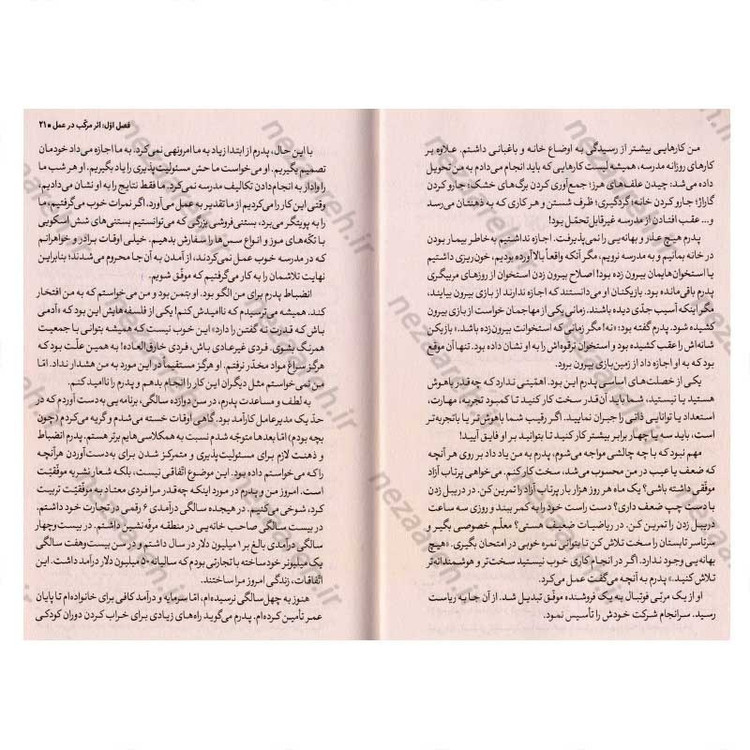 من کارهایی بیشتر از رسیدگی به اوضاع خانه و باغبانی داشتم. علاوه بر
کارهای روزانه مدرسه، همیشه لیست کارهایی که باید انجام می‌دادم به من تحویل
داده می‌شد: چیدن علف‌های هرز؛ جمع‌آوری کردن برگ‌های خشک؛ جارو کردن
گاراژ؛ جارو کردن خانه؛ گردگیری؛ ظرف شستن و هر کاری که به ذهنتان می‌رسد
و... عقب افتادن از مدرسه غیرقابل تحمّل بود!
پدرم هیچ عذر و بهانه‌یی را نمی‌پذیرفت. اجازه نداشتیم به خاطر بیمار بودن
در خانه بمانیم و به مدرسه نرویم، مگر آنکه واقعاً بالا آورده بودیم، خون‌ریزی داشتیم
یا استخوان‌هایمان بیرون زده بود! اصلاح بیرون زدن استخوان از روزهای مربیگری
پدرم باقی‌مانده بود. بازیکنان او می‌دانستند که اجازه ندارند از بازی بیرون بیایند،
مگر اینکه آسیب جدّی دیده باشند. زمانی یکی از مهاجمان خواست از بازی بیرون
کشیده شود. پدرم گفته بود: «نه! مگر زمانی که استخوانت بیرون زده باشد.» بازیکن
شانه‌اش را عقب کشیده بود و استخوان ترقوه‌اش را به او نشان داده بود. تنها آن موقع
بود که به او اجازه داد از زمین بازی بیرون برود.
یکی از خصلت‌های اساسی پدرم این بود. اهمّیتی ندارد که چه‌قدر باهوش
هستید یا نیستید، شما باید آن‌قدر سخت کار کنید تا کمبود تجربه، مهارت،
استعداد یا توانایی ذاتی را جبران نمایید. اگر رقیب شما باهوش‌تر یا باتجربه‌تر
است، باید سه یا چهار برابر بیشتر کار کنید تا بتوانید بر او فایق آیید!
مهم نبود که با چه چالشی مواجه می‌شوم، پدرم به من یاد داد بر روی هر آنچه
که ضعف یا عیب در من محسوب می‌شد، سخت کار کنم. می‌خواهی پرتاب آزاد
موفقی داشته باشی؟ یک ماه هر روز هزار بار پرتاب آزاد را تمرین کن. در دریبل زدن
با دست چپ ضعف داری؟ دست راست خود را به کمر ببند و روزی سه ساعت
دریبل زدن را تمرین کن. در ریاضیات ضعیف هستی؟ معلّم خصوصی بگیر و
سرتاسر تابستان را سخت تلاش کن تا بتوانی نمره خوبی در امتحان بگیری. «هیچ
بهانه‌یی وجود ندارد. اگر در انجام کاری خوب نیستید سخت‌تر و هوشمندانه‌تر
تلاش کنید.» پدرم به آنچه می‌گفت عمل می‌کرد.
او از یک مربّی فوتبال به یک فروشنده موفق تبدیل شد. از آن جا به ریاست
رسید. سرانجام شرکت خودش را تأسیس نمود.
فصل اوّل: اثر مرکّب در عمل ■ ۲۱
با این حال، پدرم از ابتدا زیاد به ما امرونهی نمی‌کرد. به ما اجازه می‌داد خودمان
تصمیم بگیریم. او می‌خواست ما حسّ مسئولیت‌پذیری را یاد بگیریم. او هر شب ما
را وادار به انجام دادن تکالیف مدرسه نمی‌کرد. ما فقط نتایج را به او نشان می‌دادیم.
وقتی این کار را می‌کردیم از ما تقدیر به عمل می‌آورد. اگر نمرات خوب می‌گرفتیم، ما
را به پوینگتر می‌برد، بستنی‌فروشی بزرگی که می‌توانستیم بستنی‌های شش اسکوپی
با تکّه‌های موز و انواع سس‌ها را سفارش بدهیم. خیلی اوقات برادر و خواهرانم
که در مدرسه خوب عمل نمی‌کردند، از آمدن به آنجا محروم می‌شدند؛ بنابراین
نهایت تلاشمان را به کار می‌گرفتیم که موفّق شویم.
انضباط پدرم برای من الگو بود. او بُت من بود و من می‌خواستم که به من افتخار
کند. همیشه می‌ترسیدم که ناامیدش کنم! یکی از فلسفه‌هایش این بود که «آدمی
باش که قدرت نه گفتن را دارد؛» این خوب نیست که همیشه بتوانی با جمعیت
همرنگ بشوی. فردی غیرعادی باش، فردی خارق‌العاده! به همین علّت بود که
هرگز سراغ مواد مخدّر نرفتم. او هرگز مستقیماً در این مورد به من هشدار نداد. امّا
من نمی‌خواستم مثل دیگران این کار را انجام بدهم و پدرم را ناامید کنم.
به لطف و مساعدت پدرم، در سن دوازده سالگی، برنامه‌یی به دست آوردم که در
حدّ یک مدیرعامل کارآمد بود. گاهی اوقات خسته می‌شدم و گریه می‌کردم (چون
بچه بودم) امّا بعدها متوجّه شدم نسبت به همکلاسی‌هایم برتر هستم. پدرم انضباط
و ذهنت لازم برای مسئولیت‌پذیری و متمرکز شدن برای به‌دست‌آوردن هرآنچه
را که می‌خواستم داده بود. این موضوع اتّفاقی نیست، بلکه شعار نشریه موفّقیّت
است. امروز من و پدرم در مورد اینکه چه‌قدر مرا فردی معتاد به موفّقیّت تربیت
کرد، شوخی می‌کنیم. در هیجده سالگی درآمدی ۶ رقمی در تجارت خود داشتم.
در بیست سالگی صاحب خانه‌یی در منطقه مرفّه‌نشین داشتم. در بیست‌وچهار
سالگی درآمدی بالغ بر ۱ میلیون دلار در سال داشتم و در سن بیست‌وهفت سالگی
یک میلیونر خودساخته با تجارتی بودم که سالیانه ۵۰ میلیون دلار درآمد داشت. این
اتّفاقات، زندگی امروز مرا ساختند.
هنوز به چهل سالگی نرسیده‌ام، امّا سرمایه و درآمد کافی برای خانواده‌ام تا پایان
عمر تأمین کرده‌ام. پدرم می‌گوید راه‌های زیادی برای خراب کردن دوران کودکی
nezaareh.ir